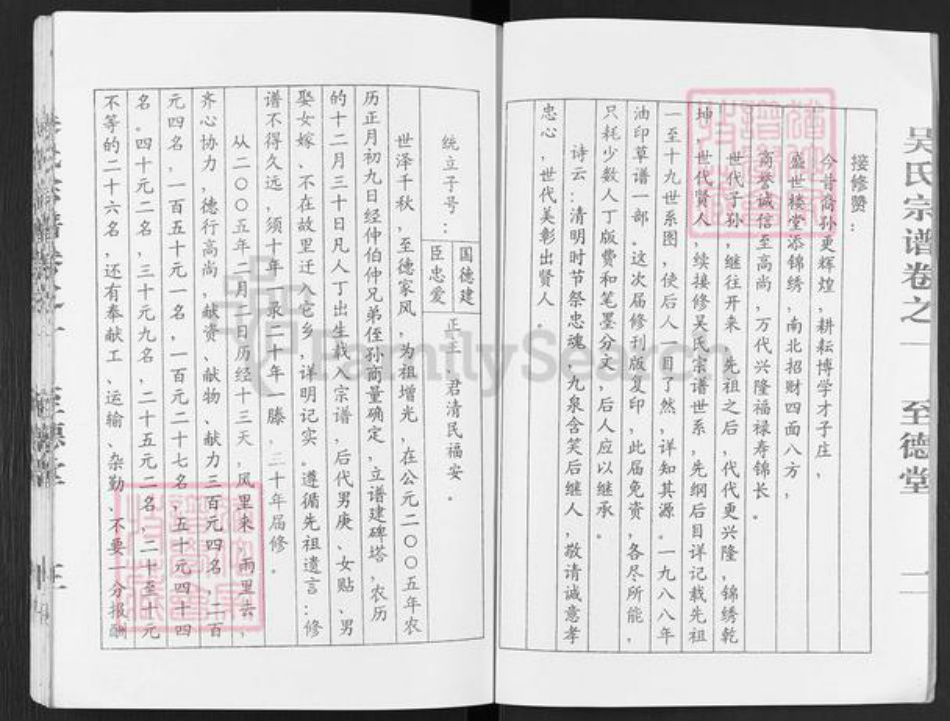 吴氏宗谱卷之一 至德堂 二
接修赞：
今昔裔孙更辉煌，耕耘博学才子庄，
盛世楼堂添锦绣，南北招财四面八方，
商誉诚信至高尚，万代兴隆福禄寿锦长。
世代子孙，继往开来，先祖之后，代代更兴隆，锦绣乾
坤，世代贤人，续接修吴氏宗谱世系，先纲后目详记载先祖
一至十九世系图，使后人一目了然，详知其源。一九八八年
油印草谱一部。这次届修刊版复印，此届免资，各尽所能，
只耗少数人丁版费和笔墨分文，后人应以继承。
诗云：清明时节祭忠魂，九泉含笑后继人，敬请诚意孝
忠心，世代美彰出贤人。
统立子号：
国德建
臣忠爱
正主．君清民福安。
世泽千秋，至德家风，为祖增光，在公元二００五年农
历正月初九日经仲伯仲兄弟侄孙商量确定，立谱建碑塔，农历
的十二月三十日凡人丁出生载入宗谱，后代男庚、女贴、男
娶女嫁、不在故里迁入它乡，详明记实。遵循先祖遗言：修
谱不得久远，须十年一录二十年一賸，三十年届修。
从二００五年二月二日历经十三天，风里来，雨里去，
齐心协力，德行高尚，献资、献物、献力三百元四名，二百
元四名，一百五十元一名，一百元二十七名，五十元四十四
名。四十元二名，三十元九名，二十五元二名，二十至十元
不等的二十六名，还有奉献工、运输、杂勤、不要一分报酬
FamilySearch